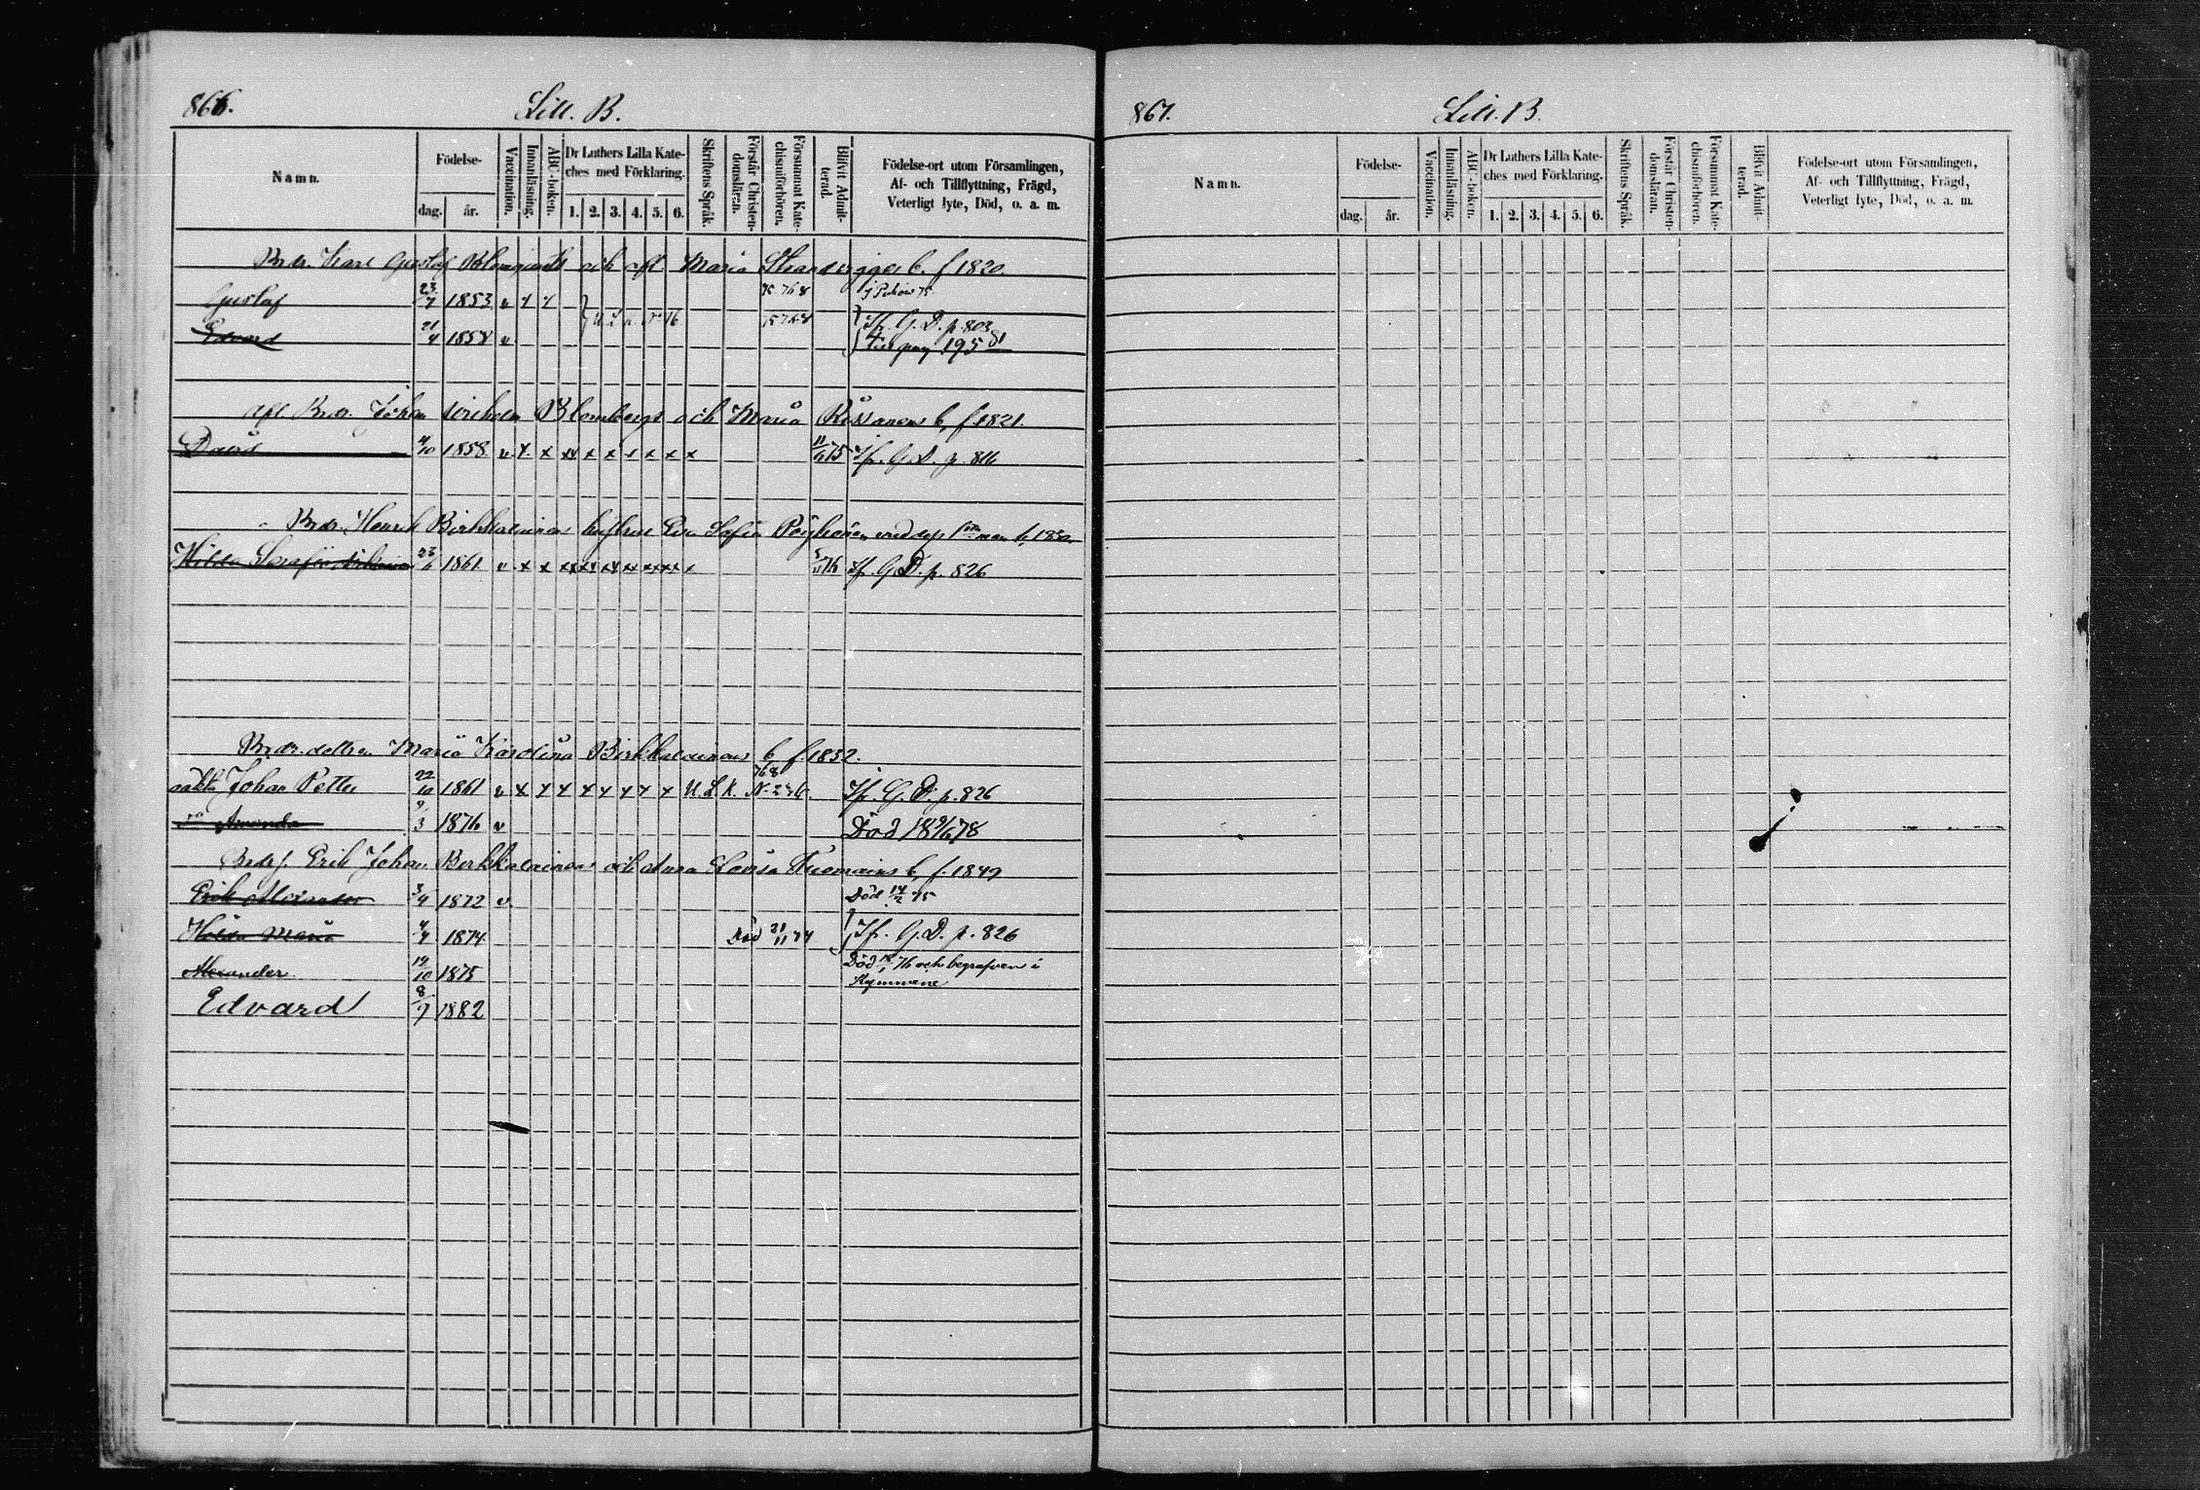 866. Litt. B.
Namn.
Födelse-
dag. år.
Vaccination.
Innanläsning.
ABC-boken.
Dr Luthers Lilla Kate-
ches med Förklaring.
1. 2. 3. 4. 5. 6.
Skriftens Språk.
Förstår Christen-
domsläran.
Försummat Kate-
chismiförhören.
Blifvit Admit-
terad.
Födelse-ort utom Församlingen,
Af- och Tillflyttning, Frägd,
Veterligt lyte, Död, o. a. m.
Brdr. Karl Gustaf Blomqvists och afl Maria b. f 1820
Gustaf 23/7 1853 v x x
Edvard 21/4 1858 v Jfr. G. D. p. 803
afl Brdr. Johan Blombergs och Maria b. f 1821.
David 4/10 1858 v x x x x x x x x x 11/6 75 Jfr. G. D. p. 816
Brdr. Henrik Birkkalainens hustrus Lisa Sofia
Hilda 23/6 1861 v x x x x x x x x x Jf. G. D. p. 826
Brdr. dottren Maria Karolina Birkkalainens b. f. 1852.
oäkta Johan Petter 22/10 1861 v x x x x x x x x U. L. K. Jfr. G. D. p. 826
Amanda 9/3 1876 v Död 18 9/6 78
Brdr f. Erik Johan Birkkalainens och Anna Lovisa b. f. 1849
Erik 3/4 1872 v Död 14/2 75
Hilda Maria 4/4 1874 Död 21/11 74 Jfr. G. D. p. 826
Alexander 12/10 1875 Död 76 och begrafven i
Kymmene
Edvard 8/7 1882
867. Litt. B.
Namn.
Födelse-
dag. år.
Vaccination.
Innanläsning.
ABC-boken.
Dr Luthers Lilla Kate-
ches med Förklaring.
1. 2. 3. 4. 5. 6.
Skriftens Språk.
Förstår Christen-
domsläran.
Försummat Kate-
chismiförhören.
Blifvit Admit-
terad.
Födelse-ort utom Församlingen,
Af- och Tillflyttning, Frägd,
Veterligt lyte, Död, o. a. m.